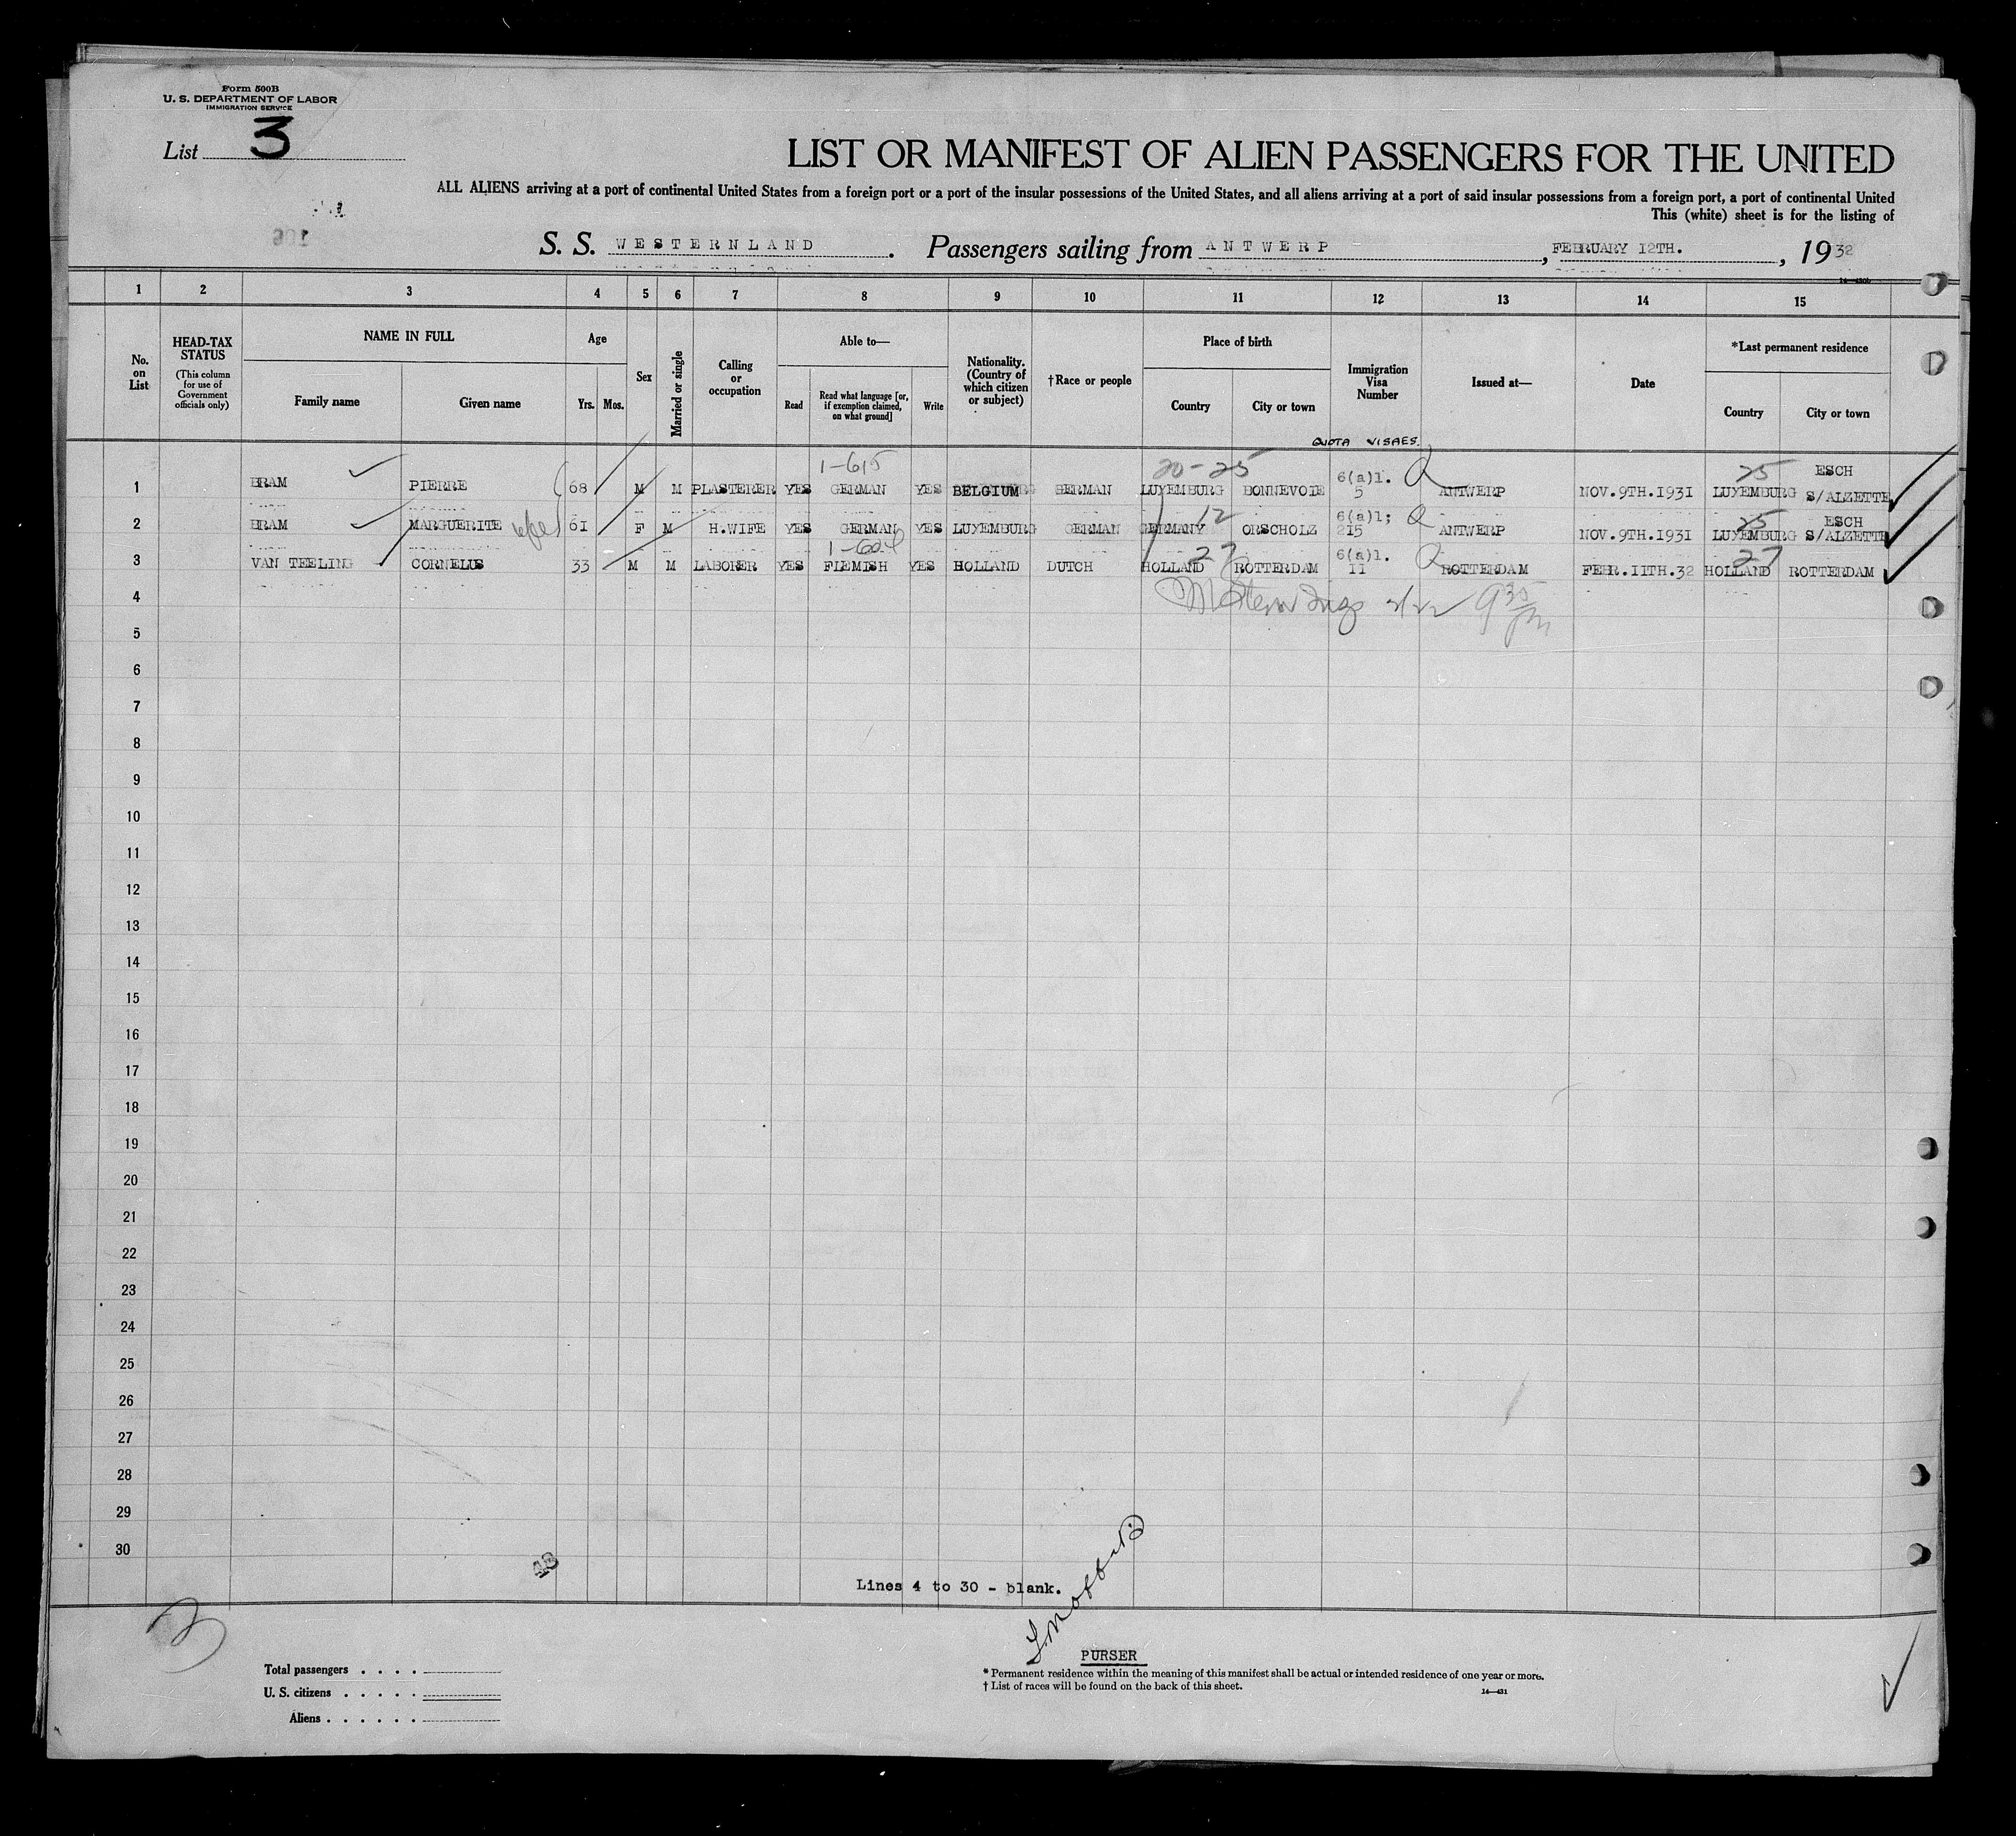 Form 500B
U. S. DEPARTMENT OF LABOR
IMMIGRATION SERVICE
List 3
LIST OR MANIFEST OF ALIEN PASSENGERS FOR THE UNITED
ALL ALIENS arriving at a port of continental United States from a foreign port or a port of the insular possessions of the United States, and all aliens arriving at a port of said insular possessions from a foreign port, a port of continental United
This (white) sheet is for the listing of
S. S. WESTERNLAND. Passengers sailing from ANTWERP, FEBRUARY 12TH., 1932
1 2 3 4 5 6 7 8 9 10 11 12 13 14 15
No. on List
HEAD-TAX STATUS
(This column for use of Government officials only)
NAME IN FULL
Family name Given name
Age
Yrs. Mos.
Sex
Married or single
Calling or occupation
Able to—
Read
Read what language [or, if exemption claimed, on what ground]
Write
Nationality. (Country of which citizen or subject)
†Race or people
Place of birth
Country City or town
Immigration Visa Number
Issued at—
Date
*Last permanent residence
Country City or town
QUOTA VISAES.
1-615 20-25 25
1 BRAM PIERRE 68 M M PLASTERER YES GERMAN YES BELGIUM GERMAN LUXEMBURG BONNEVOIE 6(a)1. 5 Q ANTWERP NOV.9TH.1931 LUXEMBURG ESCH S/ALZETTE
12 25
2 BRAM MARGUERITE wife 61 F M H.WIFE YES GERMAN YES LUXEMBURG GERMAN GERMANY ORSCHOLZ 6(a)1; 215 Q ANTWERP NOV.9TH.1931 LUXEMBURG ESCH S/ALZETTE
1-604 27 27
3 VAN TEELING CORNELUS 33 M M LABORER YES FLEMISH YES HOLLAND DUTCH HOLLAND ROTTERDAM 6(a)1. 11 Q ROTTERDAM FEBR.11TH.32 HOLLAND ROTTERDAM
4
5
6
7
8
9
10
11
12
13
14
15
16
17
18
19
20
21
22
23
24
25
26
27
28
29
30
Lines 4 to 30 - blank.
PURSER
Total passengers
U. S. citizens
Aliens
* Permanent residence within the meaning of this manifest shall be actual or intended residence of one year or more.
† List of races will be found on the back of this sheet.
14—431